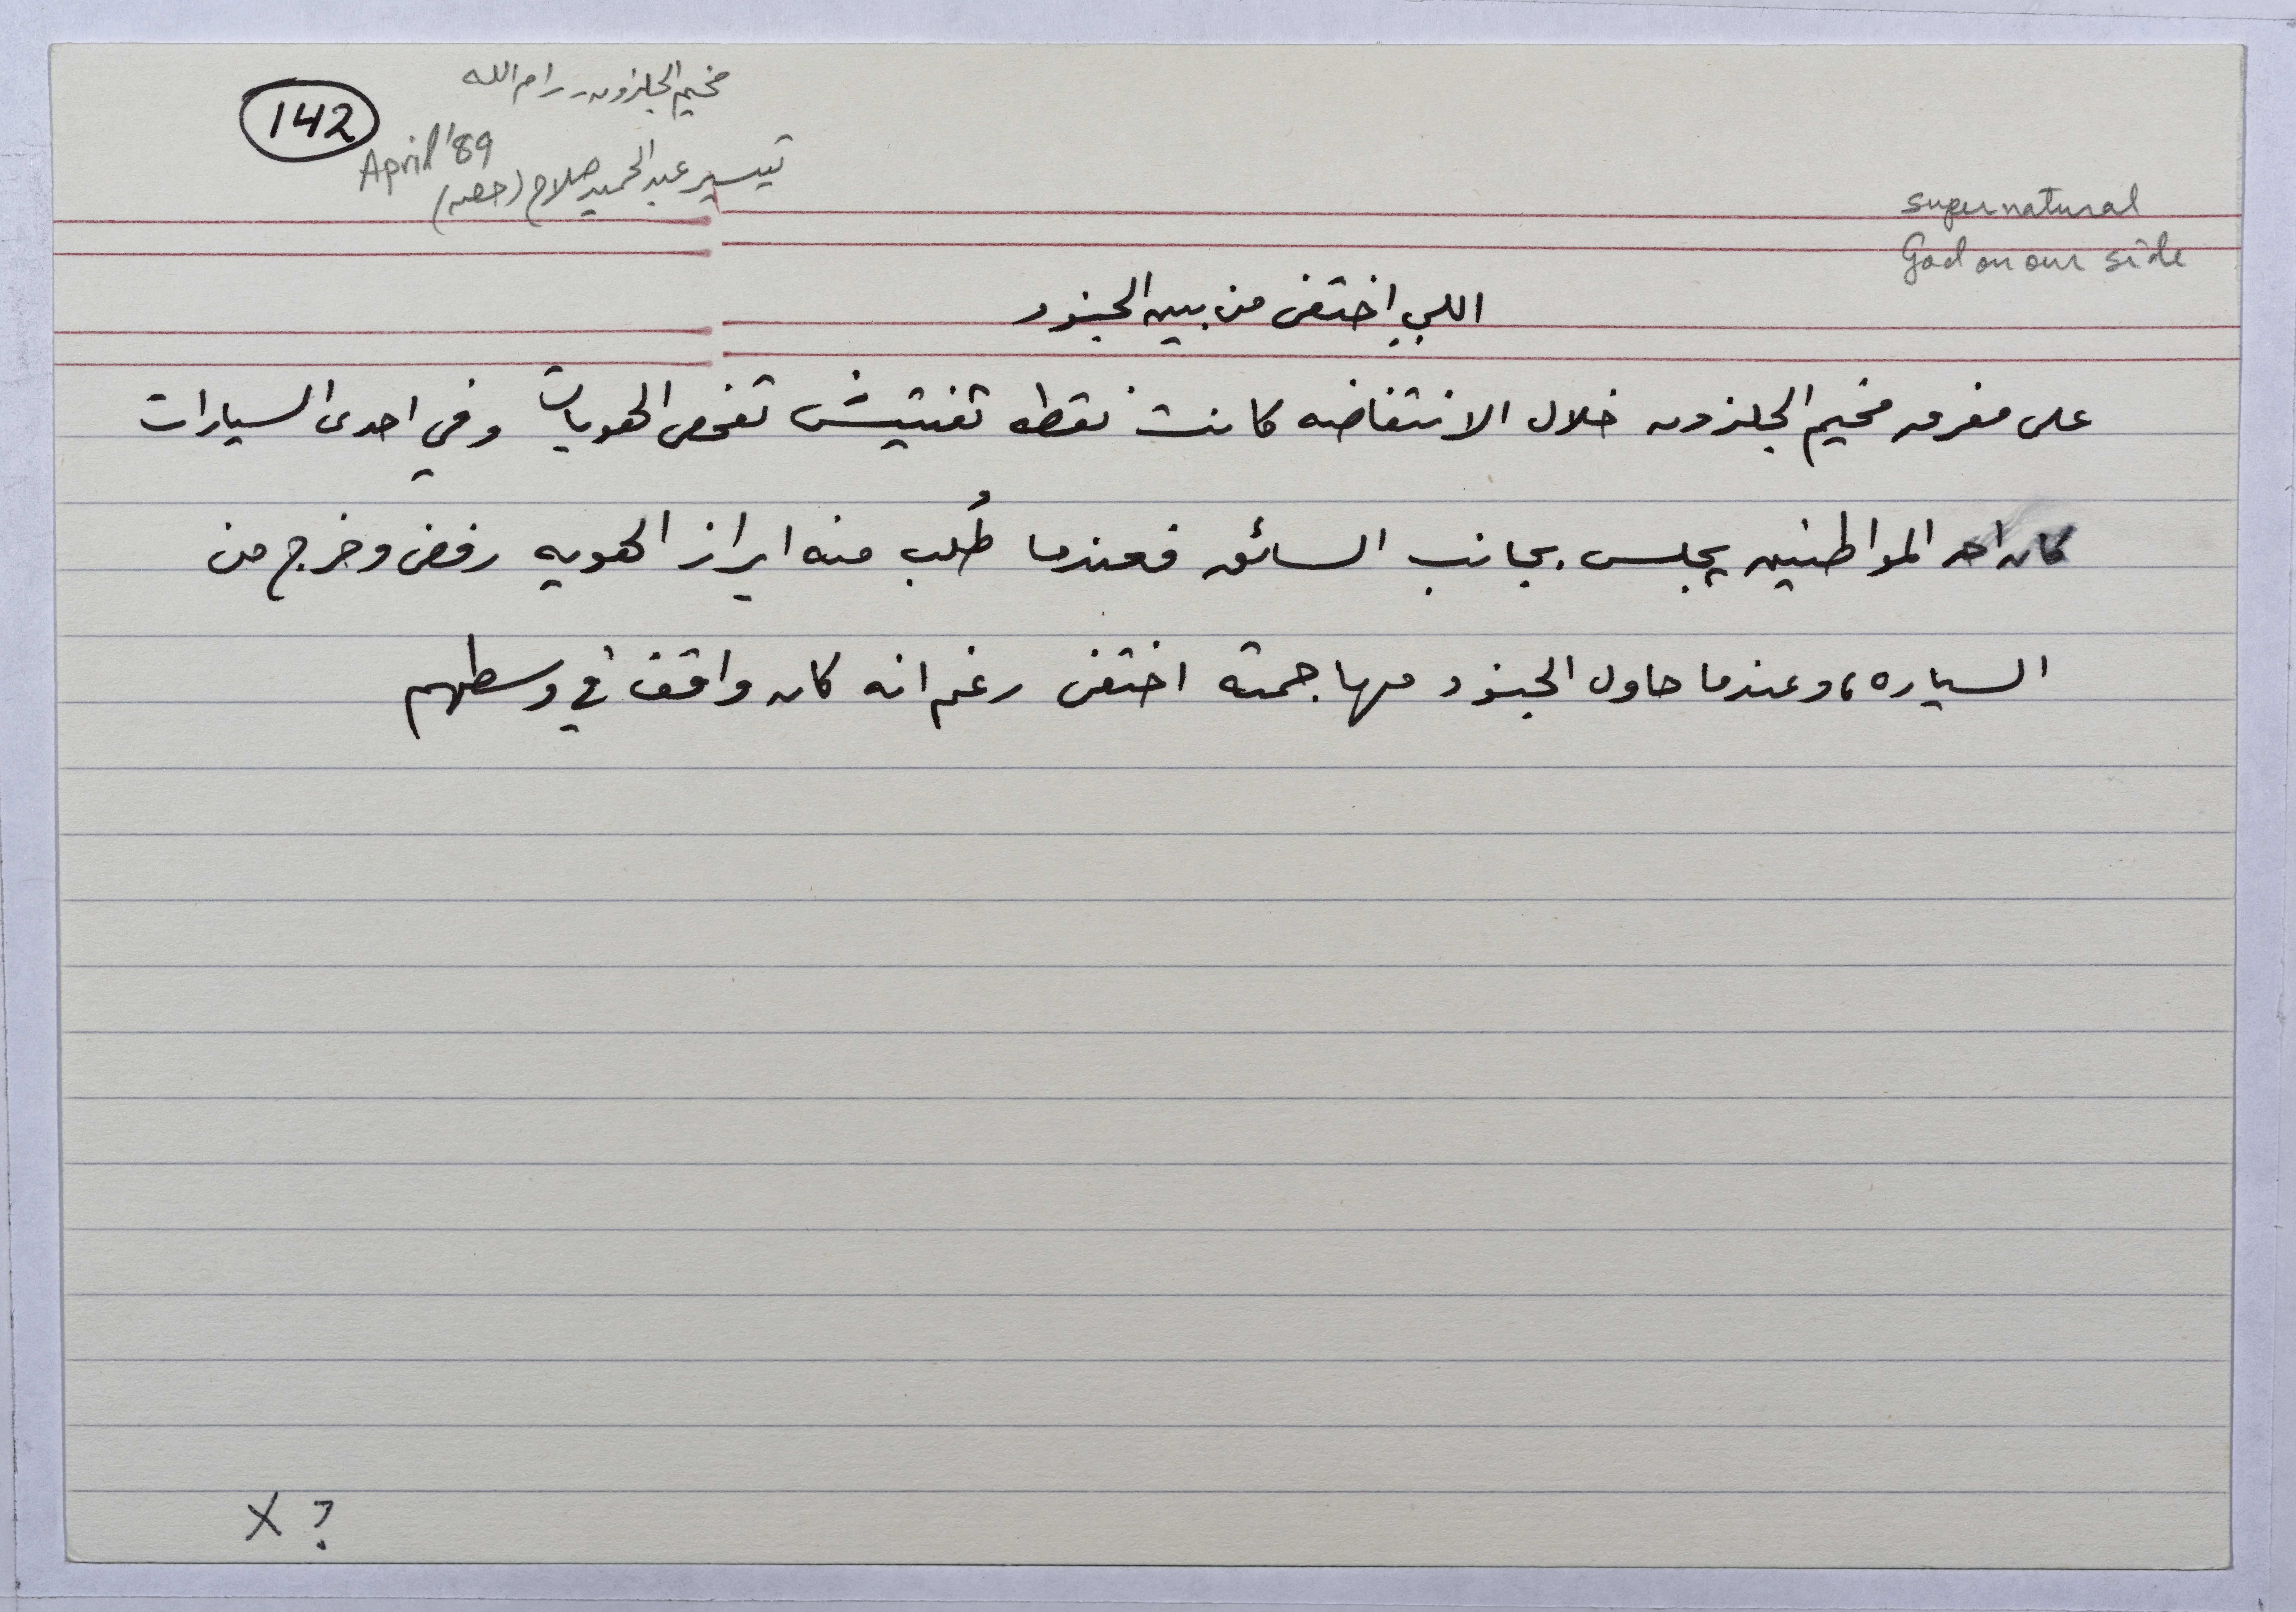 142
مخيم الجلزون - رام الله
April '89
تيسير عبد الحميد صلاح
supernatural
God on our side
اللي إختفى من بين الجنود
على مفرق مخيم الجلزون خلال الانتفاضه كانت نقطه تفتيش تفحص الهويات وفي احدى السيارات
كان احد المواطنين يجلس بجانب السائق فعندما طُلب منه ابراز الهويه رفض وخرج من
السياره، وعندما حاول الجنود مهاجمته اختفى رغم انه كان واقف في وسطهم
X ?